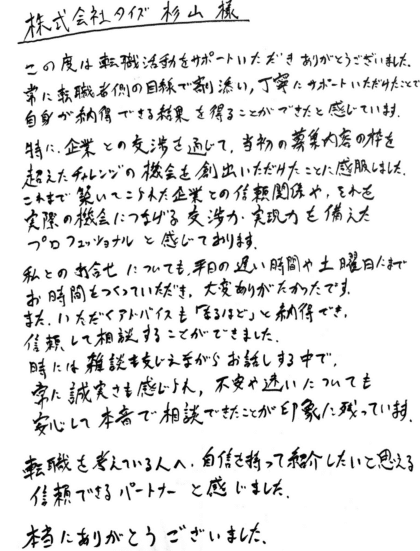 株式会社タイズ 杉山 様
この度は転職活動をサポートいただきありがとうございました。
常に転職者側の目線で割り添い、丁寧にサポートいただけたことで
自身が納得できる結果を得ることができたと感じています。
特に、企業との交渉を通じて、当初の募集内容の枠を
超えたチャレンジの機会を創出いただけたことに感服しました。
これまで築いてこられた企業との信頼関係や、それを
実際の機会につなげる交渉力・実現力を備えた
プロフェッショナルと感じております。
私とのお合せについても、平日の遅い時間や土曜日にまで
お時間をつくっていただき、大変ありがたかったです。
また、いただくアドバイスも「なるほど」と納得でき、
信頼して相談することができました。
時には雑談も交じえながらお話しする中で、
常に誠実さも感じられ、不安や迷いについても
安心して本音で相談できたことが印象に残っています。
転職を考えている人へ、自信を持って紹介したいと思える
信頼できるパートナーと感じました。
本当にありがとうございました。